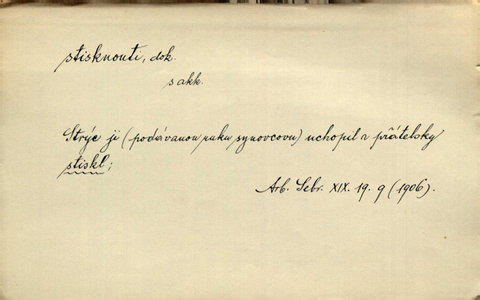 stisknouti, dok.
s akk.
Strýc ji (podávanou ruku synovcovu) uchopil a přátelsky
stiskl;
Arb. Sebr. XIX. 19. 9 (1906).